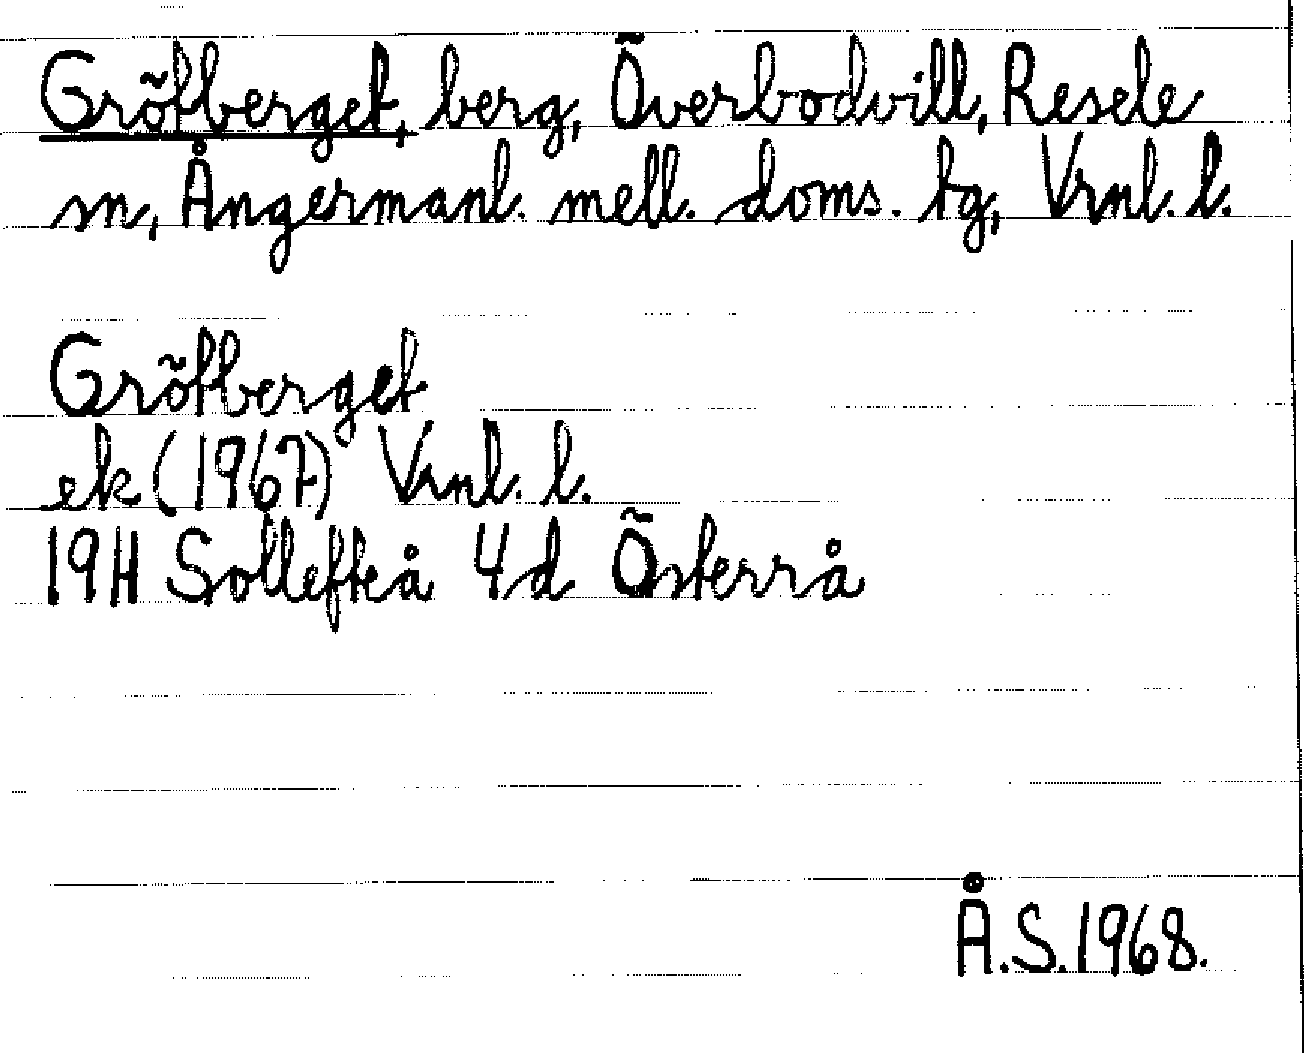 Grötberget, berg, Överbodvill, Resele
sn, Ångermanl. mell. doms. tg, Vrnl. l.
Grötberget
ek (1967) Vrnl. l.
19H Sollefteå 4d Österrå
Å.S. 1968.